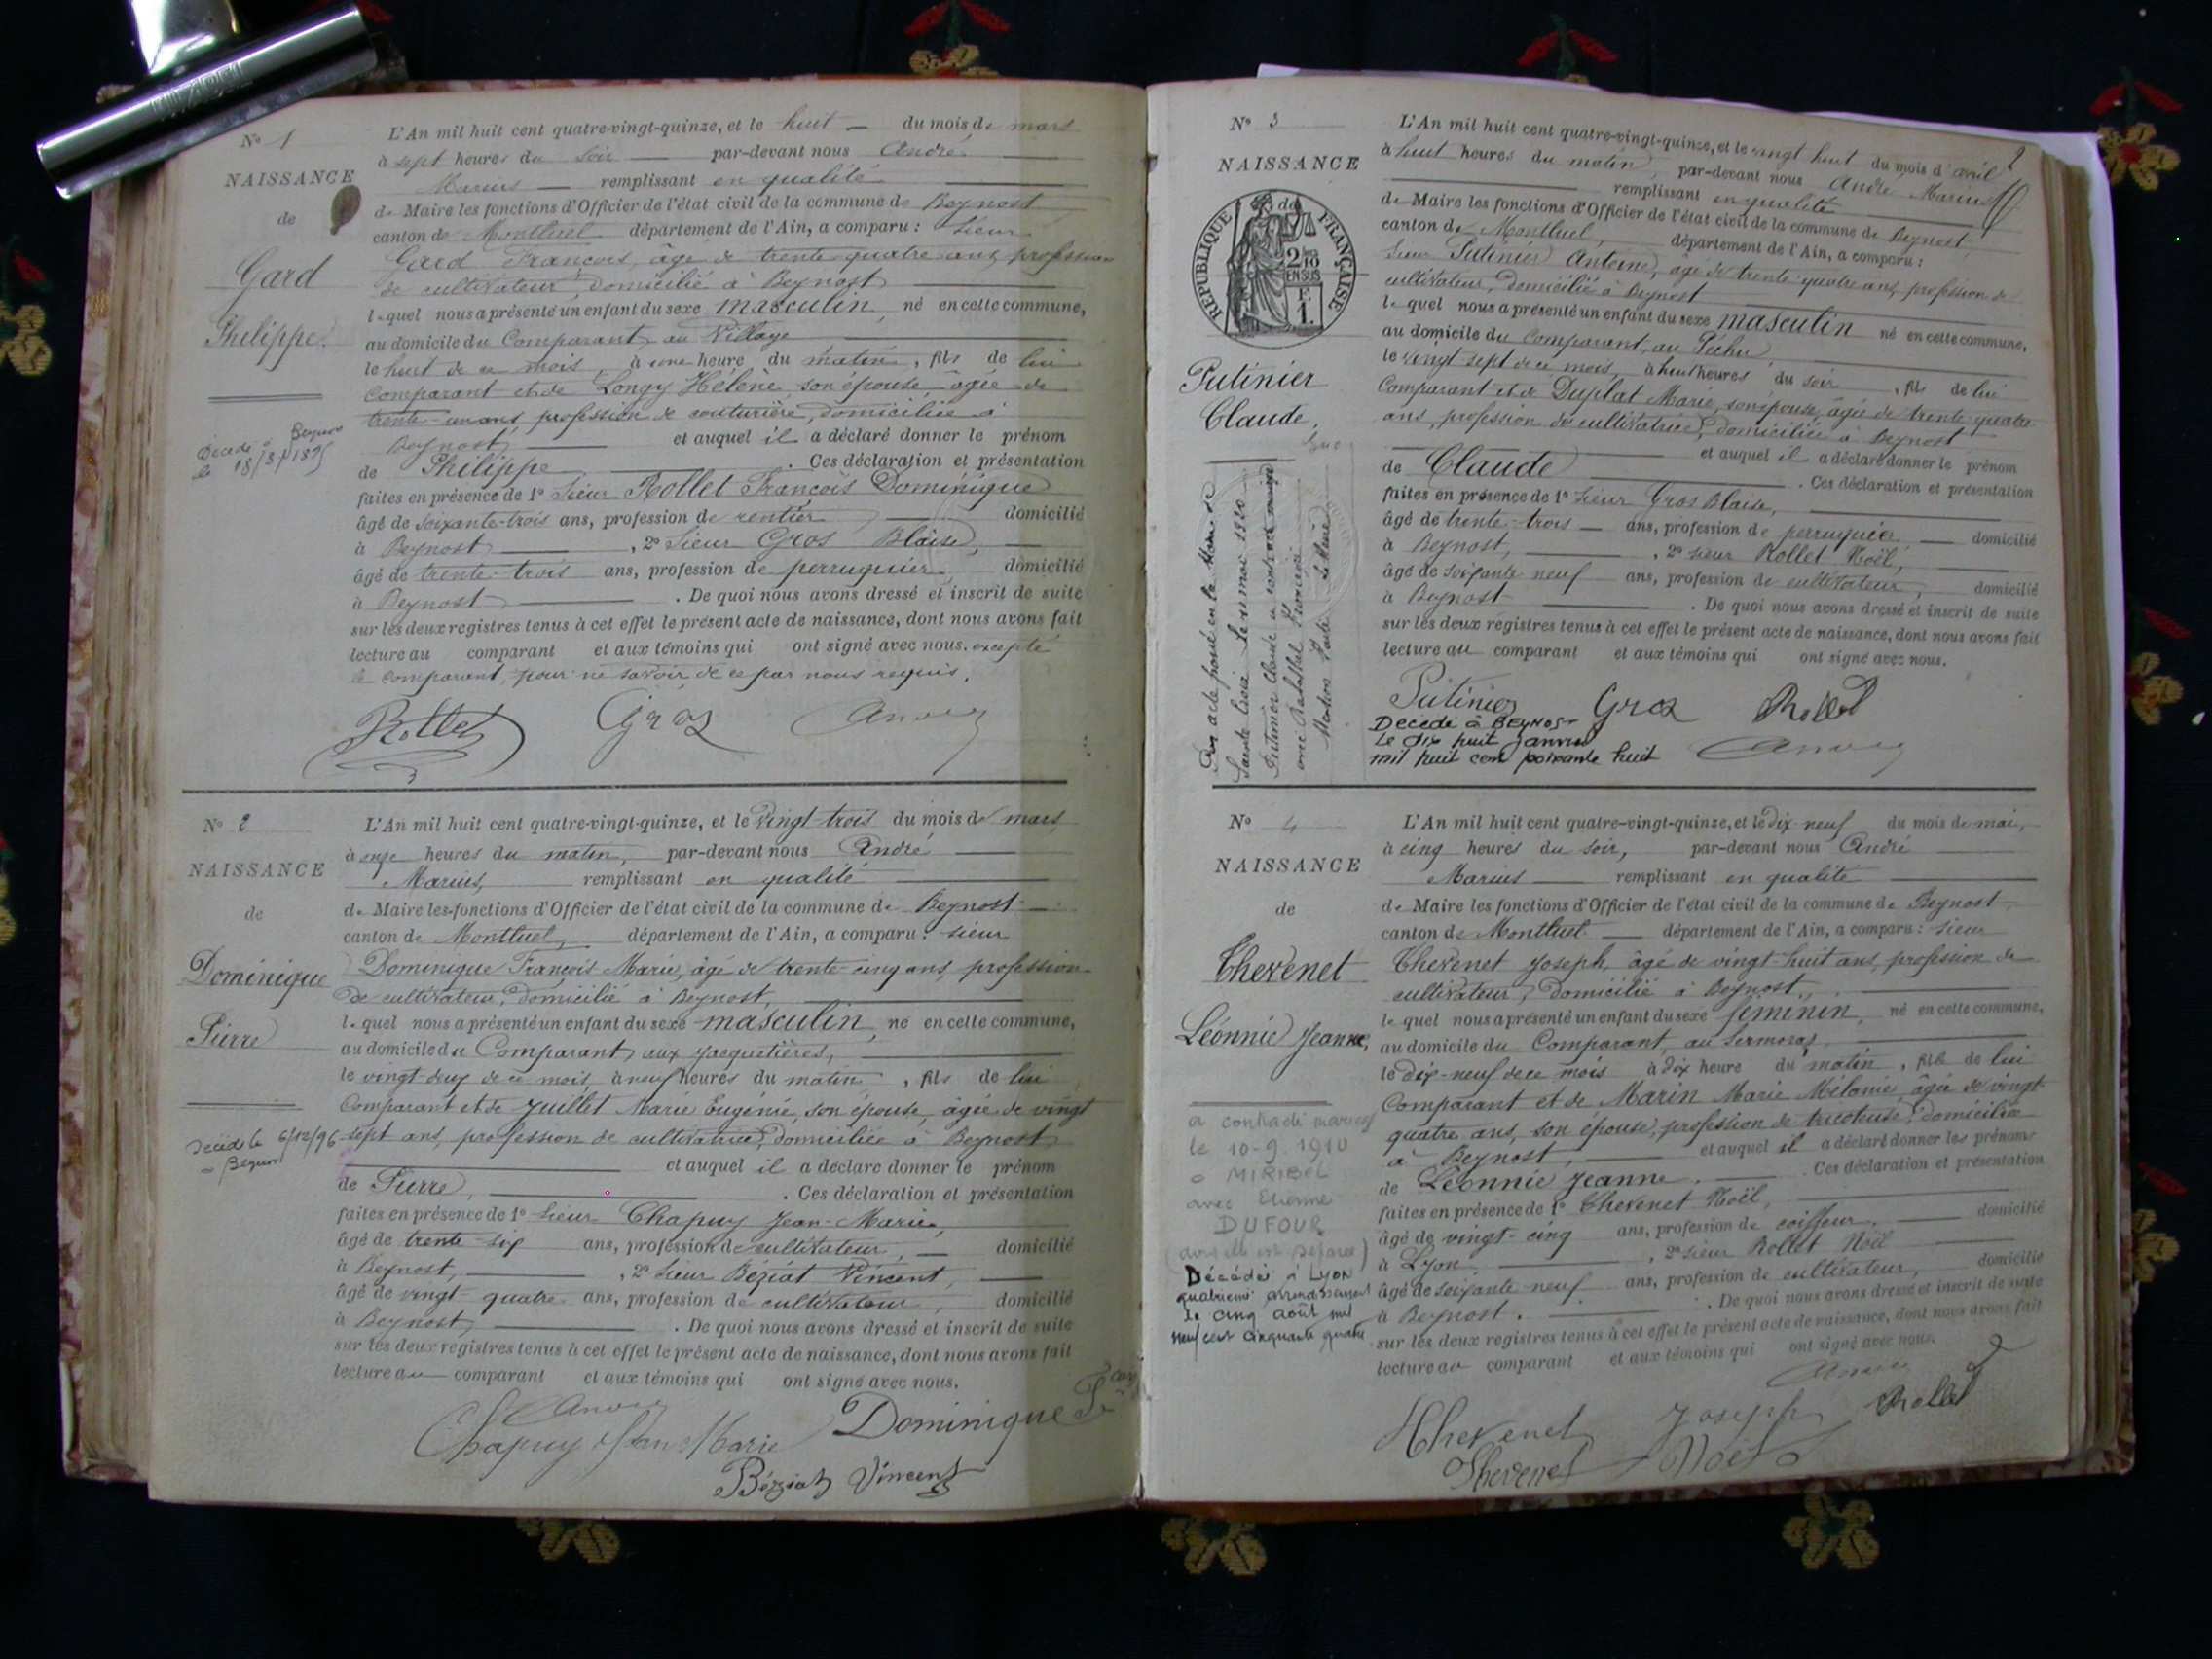 N° 1
NAISSANCE
de
Gard
Philippe.
Décédé à Beynost
le 18/3/1895
L'An mil huit cent quatre-vingt-quinze, et le huit du mois de mars
à sept heures du soir par-devant nous André
Marius remplissant en qualité
de Maire les fonctions d'Officier de l'état civil de la commune de Beynost
canton de Montluel département de l'Ain, a comparu : sieur
Gard François, âgé de trente quatre ans, profession
de cultivateur, domicilié à Beynost
lequel nous a présenté un enfant du sexe masculin, né en cette commune,
au domicile du Comparant au Village
le huit de ce mois, à une heure du matin, fils de lui
comparant et de Longy Hélène, son épouse, âgée de
trente-un ans, profession de couturière, domiciliée à
Beynost, et auquel il a déclaré donner le prénom
de Philippe. Ces déclaration et présentation
faites en présence de 1° Sieur Rollet François Dominique
âgé de soixante-trois ans, profession de rentier domicilié
à Beynost, 2° Sieur Gros Blaise,
âgé de trente-trois ans, profession de perruquier domicilié
à Beynost. De quoi nous avons dressé et inscrit de suite
sur les deux registres tenus à cet effet le présent acte de naissance, dont nous avons fait
lecture au comparant et aux témoins qui ont signé avec nous. excepté
le comparant, pour ne savoir de ce par nous requis.
Rollet Gros
N° 2
NAISSANCE
de
Dominique
Pierre
Décédé le 6/12/96
à Beynost
L'An mil huit cent quatre-vingt-quinze, et le vingt trois du mois de mars
à onze heures du matin, par-devant nous André
Marius, remplissant en qualité
de Maire les fonctions d'Officier de l'état civil de la commune de Beynost
canton de Montluel, département de l'Ain, a comparu : sieur
Dominique François Marie, âgé de trente-cinq ans, profession
de cultivateur, domicilié à Beynost,
lequel nous a présenté un enfant du sexe masculin, né en cette commune,
au domicile du Comparant, aux Jacquetières,
le vingt deux de ce mois, à neuf heures du matin, fils de lui
Comparant et de Juillet Marie Eugénie, son épouse, âgée de vingt
sept ans, profession de cultivatrice, domiciliée à Beynost
et auquel il a déclaré donner le prénom
de Pierre. Ces déclaration et présentation
faites en présence de 1° Sieur Chapuy Jean-Marie,
âgé de trente-six ans, profession de cultivateur, domicilié
à Beynost, 2° Sieur Béziat Vincent,
âgé de vingt-quatre ans, profession de cultivateur, domicilié
à Beynost. De quoi nous avons dressé et inscrit de suite
sur les deux registres tenus à cet effet le présent acte de naissance, dont nous avons fait
lecture au comparant et aux témoins qui ont signé avec nous.
Chapuy Jean Marie Dominique
Béziat Vincent
2
N° 3
NAISSANCE
de
REPUBLIQUE FRANÇAISE
2/10 EN SUS
F. 1.
Putinier
Claude.
Par acte passé en la Mairie de
Le 1er mai 1920
Putinier Claude a contracté mariage
avec
L'An mil huit cent quatre-vingt-quinze, et le vingt huit du mois d'avril
à huit heures du matin, par-devant nous André Marius
remplissant en qualité
de Maire les fonctions d'Officier de l'état civil de la commune de Beynost,
canton de Montluel, département de l'Ain, a comparu :
sieur Putinier Antoine, âgé de trente-quatre ans, profession de
cultivateur, domicilié à Beynost
lequel nous a présenté un enfant du sexe masculin né en cette commune,
au domicile du Comparant, au Péchu
le vingt sept de ce mois, à huit heures du soir, fils de lui
Comparant et de Duplat Marie, son épouse, âgée de trente-quatre
ans, profession de cultivatrice, domiciliée à Beynost
et auquel il a déclaré donner le prénom
de Claude. Ces déclaration et présentation
faites en présence de 1° Sieur Gros Blaise,
âgé de trente-trois ans, profession de perruquier domicilié
à Beynost, 2° sieur Rollet Noël,
âgé de soixante neuf ans, profession de cultivateur, domicilié
à Beynost. De quoi nous avons dressé et inscrit de suite
sur les deux registres tenus à cet effet le présent acte de naissance, dont nous avons fait
lecture au comparant et aux témoins qui ont signé avec nous.
Putinier Gros Rollet
Décédé à BEYNOST
Le dix huit janvier
mil huit cent soixante huit
N° 4
NAISSANCE
de
Thevenet
Léonnie Jeanne,
a contracté mariage
le 10-9-1910
à MIRIBEL
avec Etienne
DUFOUR
(dont elle est séparée)
Décédée à Lyon
quatrième arrondissement
le cinq août mil
neuf cent cinquante quatre
L'An mil huit cent quatre-vingt-quinze, et le dix-neuf du mois de mai,
à cinq heures du soir, par-devant nous André
Marius remplissant en qualité
de Maire les fonctions d'Officier de l'état civil de la commune de Beynost,
canton de Montluel département de l'Ain, a comparu : sieur
Thevenet Joseph, âgé de vingt-huit ans, profession de
cultivateur, domicilié à Beynost,
lequel nous a présenté un enfant du sexe féminin, né en cette commune,
au domicile du Comparant, au Sermoraz
le dix-neuf de ce mois à dix heure du matin, fille de lui
Comparant et de Marin Marie Mélanie, âgée de vingt
quatre ans, son épouse, profession de tricoteuse, domiciliée
à Beynost, et auquel il a déclaré donner les prénoms
de Léonnie Jeanne. Ces déclaration et présentation
faites en présence de 1° Thevenet Noël,
âgé de vingt-cinq ans, profession de coiffeur, domicilié
à Lyon, 2° sieur Rollet Noël
âgé de soixante neuf ans, profession de cultivateur, domicilié
à Beynost. De quoi nous avons dressé et inscrit de suite
sur les deux registres tenus à cet effet le présent acte de naissance, dont nous avons fait
lecture au comparant et aux témoins qui ont signé avec nous.
Thevenet Joseph Rollet
Thevenet Noël